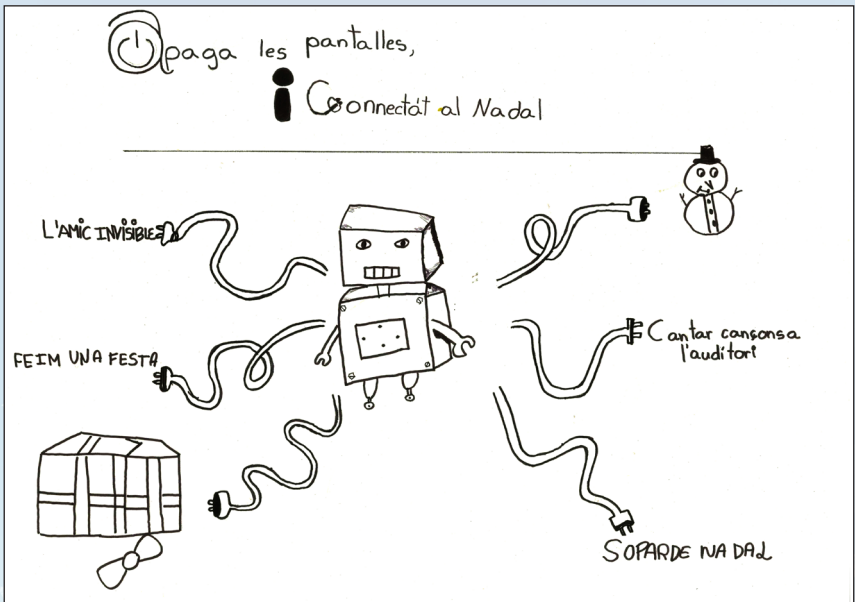 Apaga les pantalles,
i Coonnectat al Nadal
L'AMIC INVISIBLE
FEIM UNA FESTA
Cantar cançonsa
l'auditori
SOPARDE NADAL